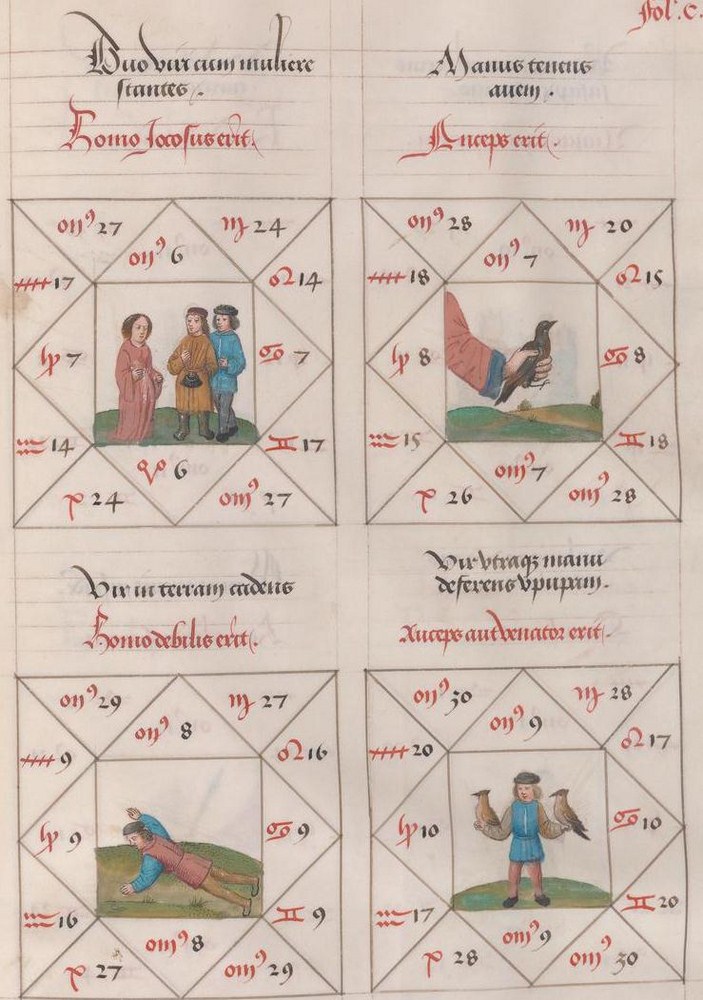 Duo viri cum muliere
stantes.
Homo Jocosus erit.
Manus tenens
auem.
Auceps erit.
Vir in terram cadens
Homo debilis erit.
Vir vtraqꝫ manu
deferens vpupam.
Auceps aut venator erit.
Fol. C.
om⁹ 27
♍ 24
om⁹ 6
17
♌ 14
♑ 7
♋ 7
♒ 14
♊ 17
♈ 6
p 24
om⁹ 27
om⁹ 28
♍ 20
om⁹ 7
18
♌ 15
♑ 8
♋ 8
♒ 15
♊ 18
om⁹ 7
p 26
om⁹ 28
om⁹ 29
♍ 27
om⁹ 8
9
♌ 16
♑ 9
♋ 9
♒ 16
♊ 9
om⁹ 8
p 27
om⁹ 29
om⁹ 30
♍ 28
om⁹ 9
20
♌ 17
♑ 10
♋ 10
♒ 17
♊ 20
om⁹ 9
p 28
om⁹ 30